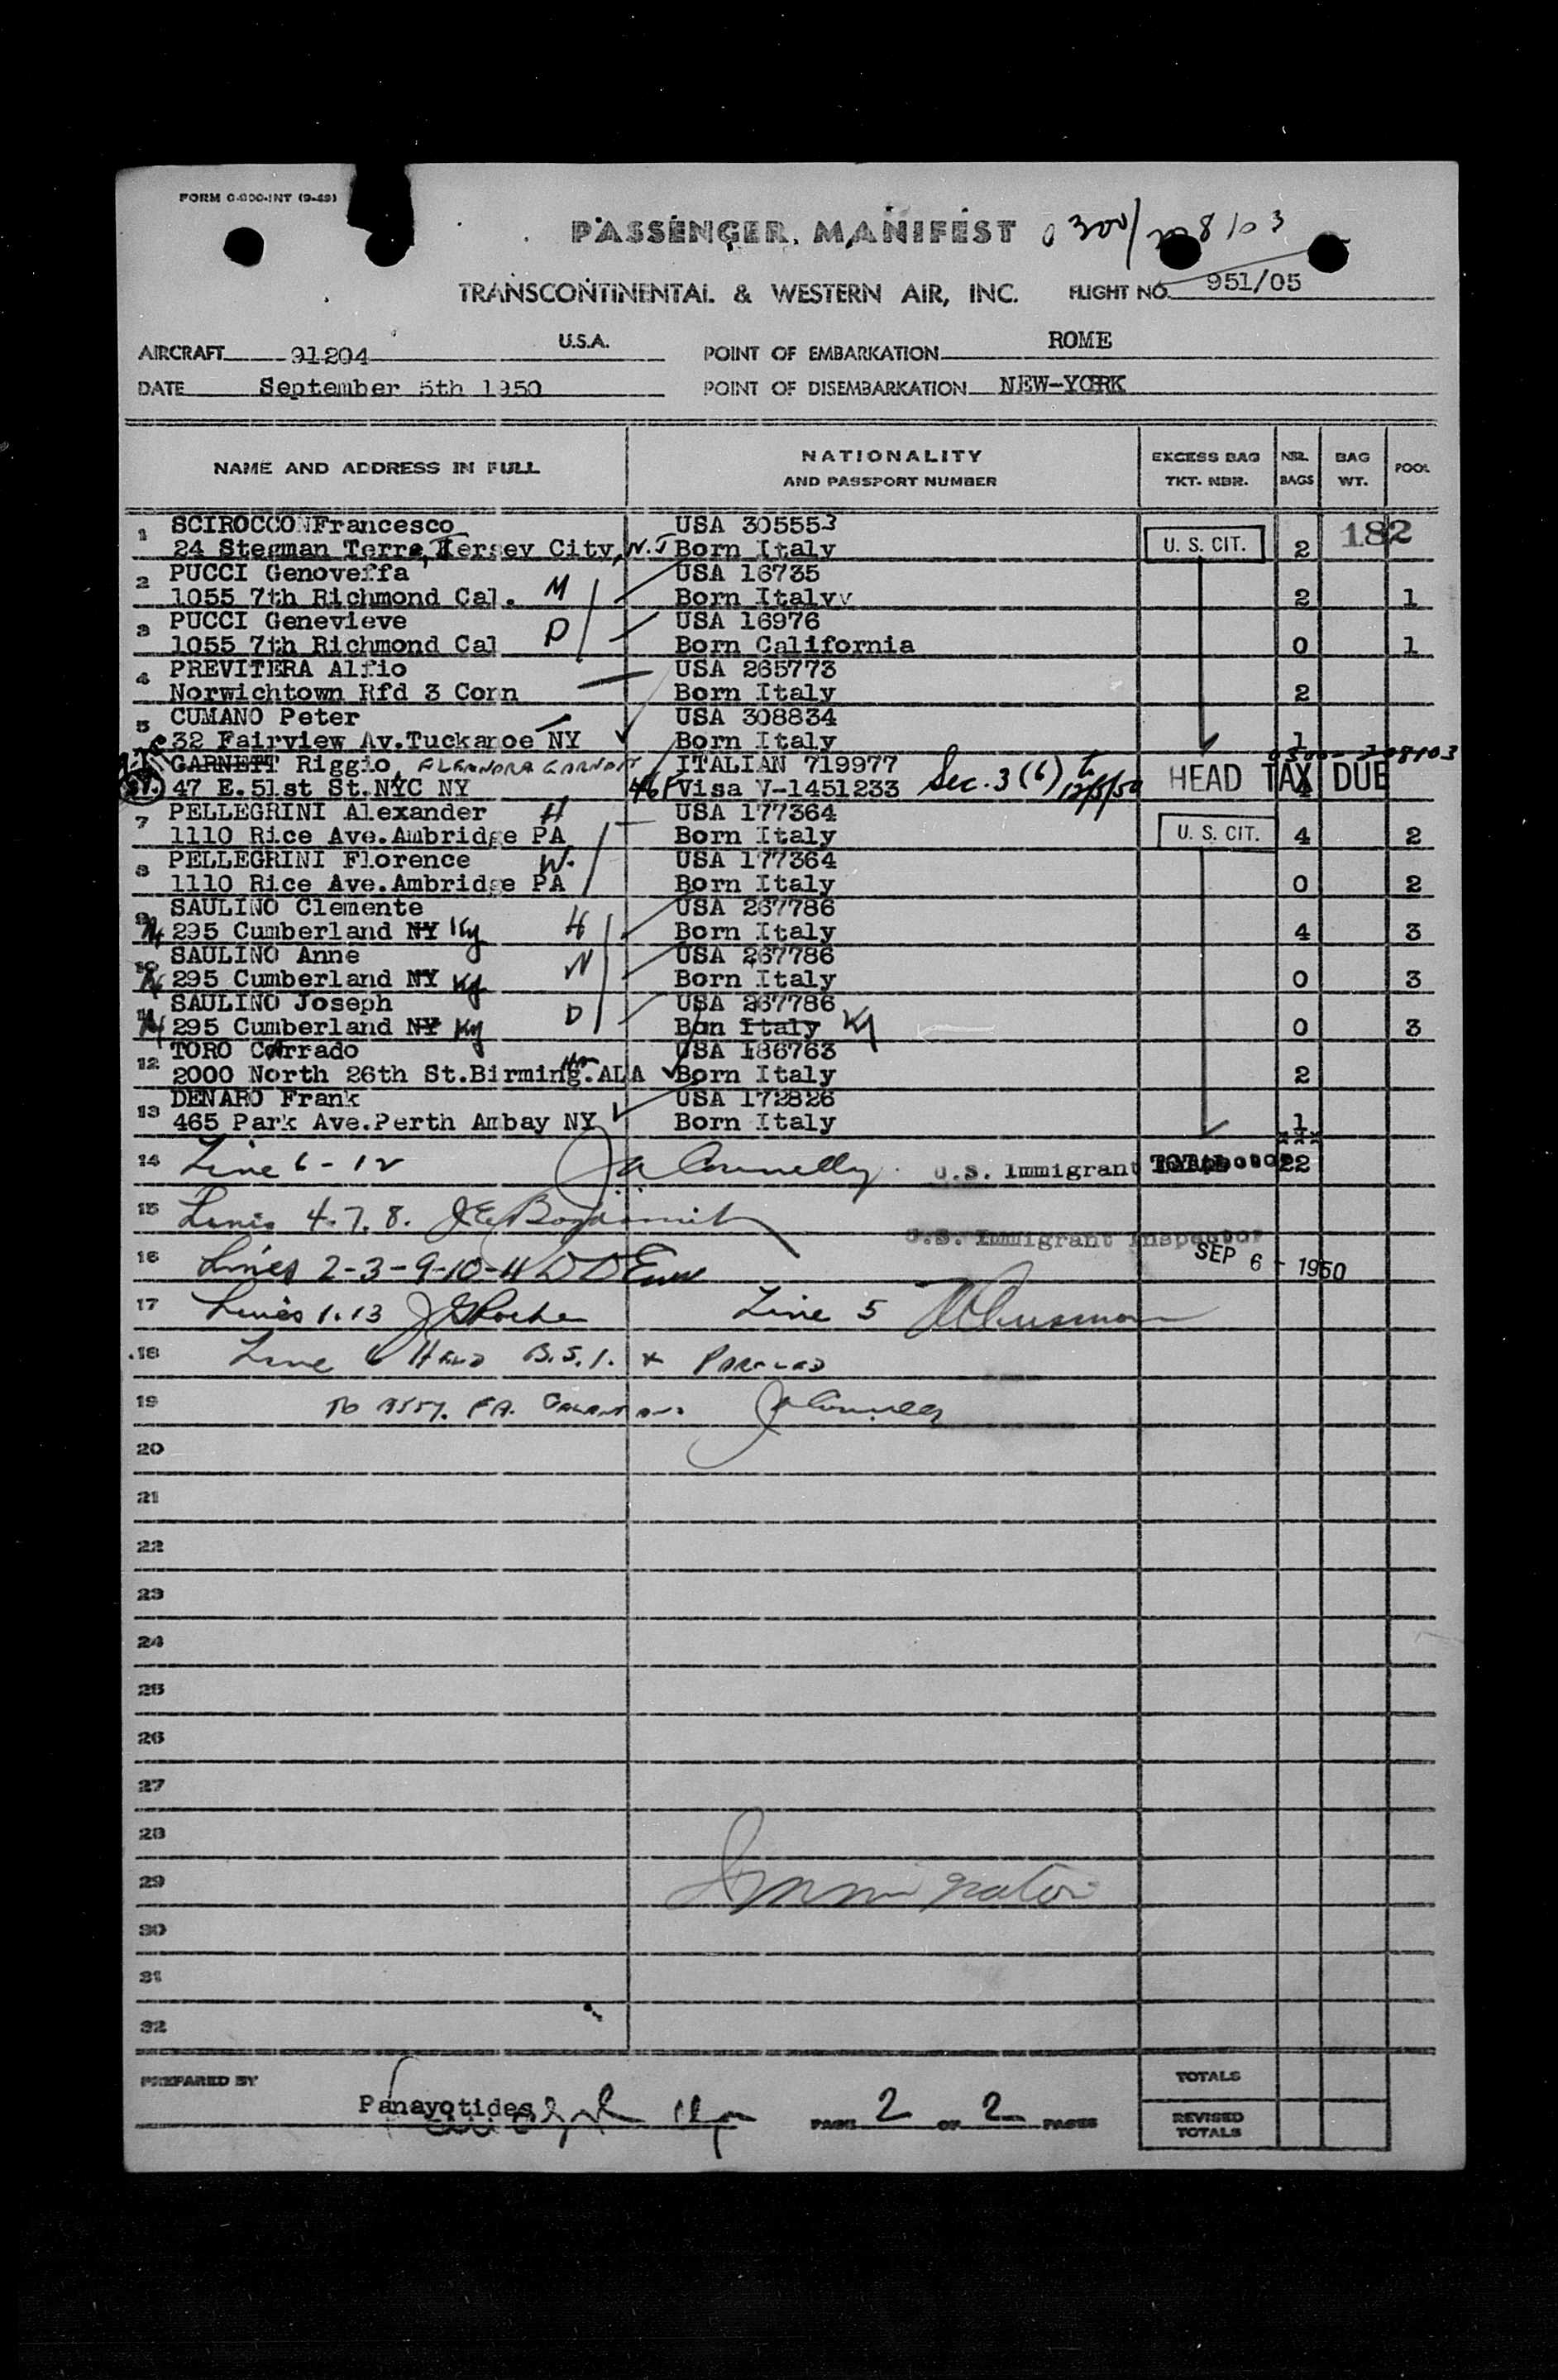 FORM 0-800-INT (9-49)
PASSENGER MANIFEST
TRANSCONTINENTAL & WESTERN AIR, INC. FLIGHT NO. 951/05
AIRCRAFT 91204 U.S.A. POINT OF EMBARKATION ROME
DATE September 5th 1950 POINT OF DISEMBARKATION NEW-YORK
NAME AND ADDRESS IN FULL NATIONALITY AND PASSPORT NUMBER EXCESS BAG TKT. NBR. NBR. BAGS BAG WT. POOL
1 SCIROCCO Francesco USA 305553 182
24 Stegman Terre, Jersey City, N.J Born Italy U. S. CIT. 2
2 PUCCI Genoveffa USA 16735
1055 7th Richmond Cal. M Born Italyv 2 1
3 PUCCI Genevieve USA 16976
1055 7th Richmond Cal D Born California 0 1
4 PREVITERA Alfio USA 265773
Norwichtown Rfd 3 Conn Born Italy 2
5 CUMANO Peter USA 308834
32 Fairview Av.Tuckaroe NY Born Italy 1
GARNETT Riggio, ELEANORA GARNETT ITALIAN 719977 0300-208103
47 E.51st St.NYC NY Visa V-1451233 Sec. 3 (6) HEAD TAX DUE
7 PELLEGRINI Alexander H USA 177364
1110 Rice Ave.Ambridge PA Born Italy U. S. CIT. 4 2
8 PELLEGRINI Florence W. USA 177364
1110 Rice Ave.Ambridge PA Born Italy 0 2
9 SAULINO Clemente USA 267786
295 Cumberland NY Ky H Born Italy 4 3
10 SAULINO Anne USA 267786
295 Cumberland NY Ky W Born Italy 0 3
11 SAULINO Joseph USA 267786
295 Cumberland NY Ky D Bon Italy Ky 0 3
12 TORO Corrado USA 186763
2000 North 26th St.Birming.ALA Born Italy 2
13 DENARO Frank USA 172826
465 Park Ave.Perth Ambay NY Born Italy 1
xxx
14 Line 6-12 JA Connelly U.S. Immigrant TOTAL 22
15 Lines 4.7.8. U.S. Immigrant Inspector
SEP 6 - 1950
16 Lines 2-3-9-10-11
17 Lines 1.13 J Roche Line 5
18 Line 6 Held B.S.I. & Paroled
19 To JA Connelly
20
21
22
23
24
25
26
27
28
29 Immigration
30
31
32
PREPARED BY Panayotides PAGE 2 OF 2 PAGES
TOTALS
REVISED TOTALS